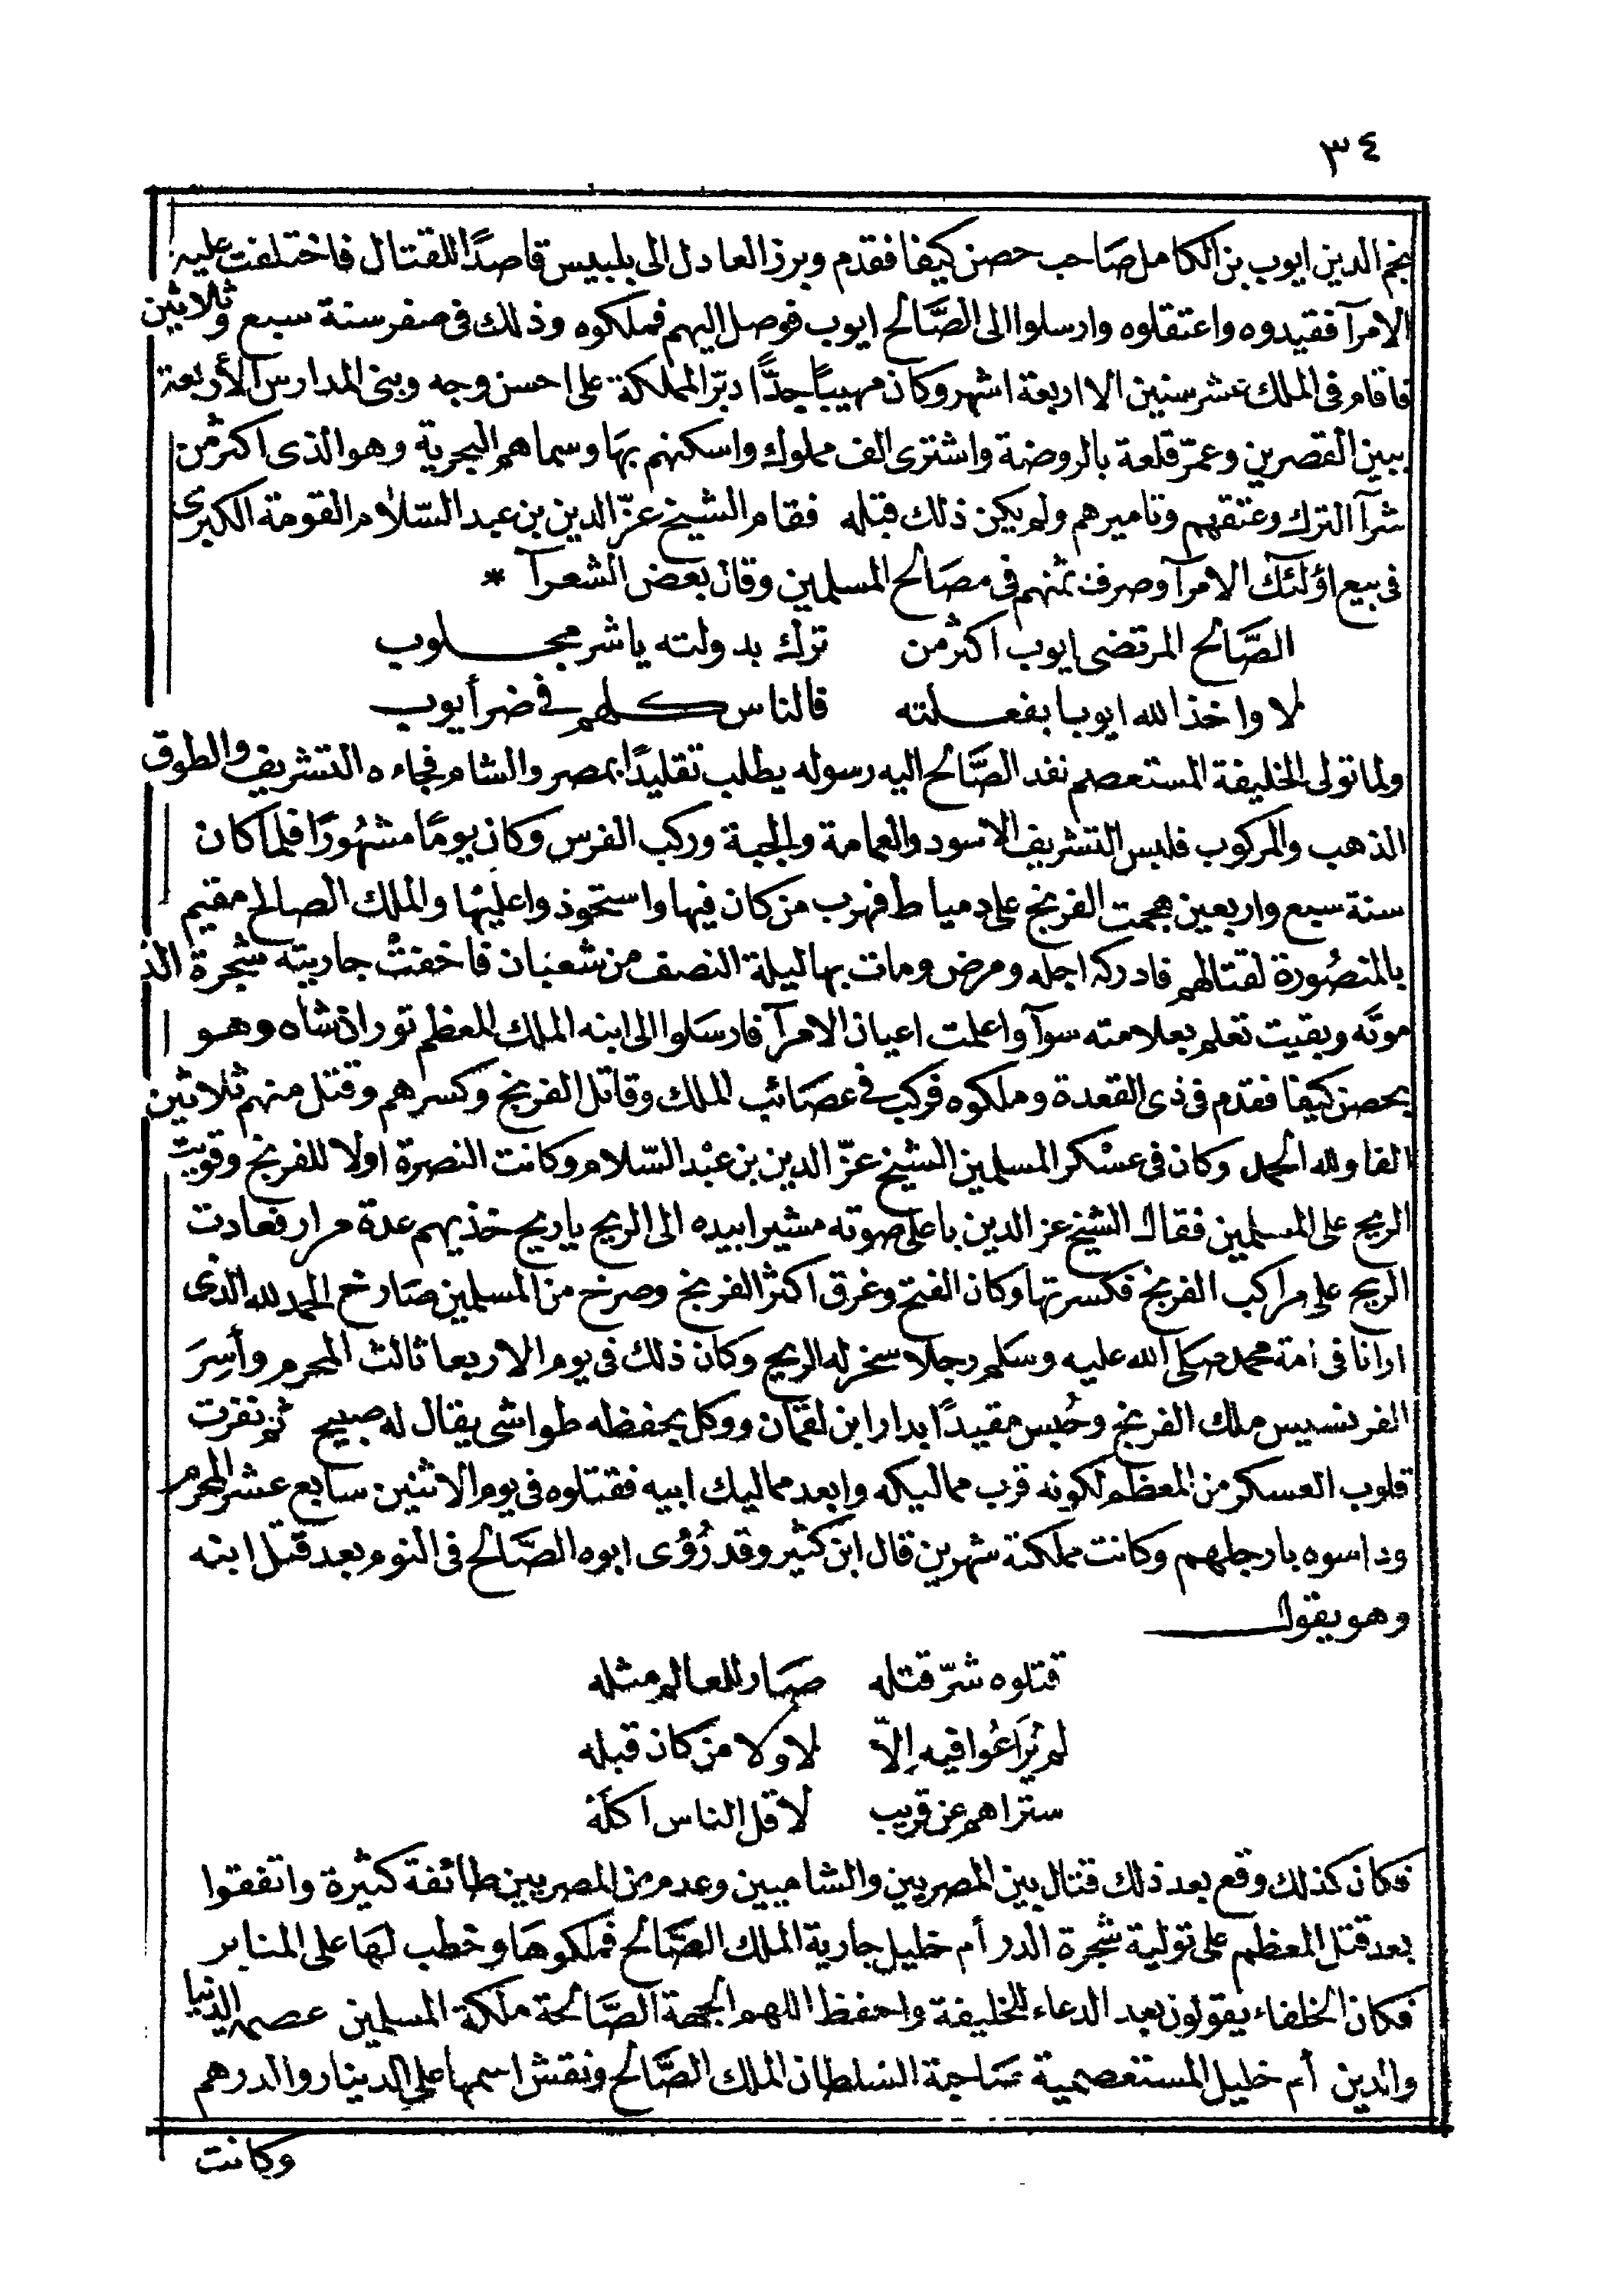 ٣٤
نجم الدين ايوب بن الكامل صاحب حصن كيفا فقدم وبرز العادل الى بلبيس قاصدًا للقتال فاختلفت عليه
الامرآ فقيدوه واعتقلوه وارسلوا الى الصَّالح ايوب فوصل اليهم فملكوه وذلك فى صفر سنة سبع وثلاثين
فاقام فى الملك عشر سنين الا اربعة اشهر وكان مهيبًا جدًّا دبّر المملكة على احسن وجه وبنى المدارس الأربعة
ببين القصرين وعمّر قلعة بالروضة واشترى الف مملوك واسكنهم بهَا وسماهم البحرية وهو الذى اكثر من
شرآ الترك وعتقهم وتاميرهم ولم يكن ذلك قبله فقام الشيخ عزّ الدين بن عبد السّلام القومة الكبرى
فى بيع اؤلئك الامرآ وصرف ثمنهم فى مصَالح المسلمين وقال بعض الشعرآ *
الصَّالح المرتضى ايوب اكثر من ترك بدولته يا شر مجلوب
لا واخذ الله ايوبا بفعلته فالناس كلهم فى ضر أيوب
ولما تولى الخليفة المستعصم نفد الصَّالح اليه رسوله يطلب تقليدًا بمصر والشام فجاءه التشريف والطوق
الذهب والمركوب فلبس التشريف الاسود والعمامة والجبة وركب الفرس وكان يومًا مشهُورًا فلما كان
سنة سبع واربعين هجمت الفرنج على دمياط فهرب من كان فيها واستحوذوا عليهَا والملك الصالح مقيم
بالمنصُورة لقتالهم فادركه اجله ومرض ومات بها ليلة النصف من شعبَان فاخفتْ جاريته شجرة الد
موته وبقيت تعلم بعلامته سوآ واعلمت اعيان الامرآ فارسَلوا الى ابنه الملك المعظم توران شاه وهو
بحصن كيفا فقدم فى ذى القعدة وملكوه فركب فى عصَائب الملك وقاتل الفرنج وكسرهم وقتل منهم ثلاثين
الفا ولله الحمد وكان فى عسْكر المسلمين الشيخ عزّ الدين بن عبْد السّلام وكانت النصرة اولا للفرنج وقويت
الريح على المسلمين فقال الشيخ عز الدين باعلى صوته مشيرا بيده الى الريح يا ريح خذيهم عدة مرار فعادت
الريح على مراكب الفرنج فكسرتها وكان الفتح وغرق اكثر الفرنج وصرخ من المسلمين صَارخ الحمد لله الذى
ارانا فى أمة محمد صلى الله عليه وسلم رجلا سخر له الريح وكان ذلك فى يوم الاربعا ثالث المحرم وأسِرَ
الفرنسيس ملك الفرنج وحُبس مقيدًا بدار ابن لقمان ووكل بحفظه طواشى يقال له صبيح ثم نفرت
قلوب العسكر من المعظم لكونه قرب مماليكه وابعد مماليك ابيه فقتلوه فى يوم الاثنين سابع عشر المحرم
وداسوه بارجلهم وكانت مملكته شهرين قال ابن كثير وقد رُؤى ابوه الصَّالح فى النوم بعد قتل ابنه
وهو يقول
قتلوه شرّ قتله صَار للعالم مثله
لم يُرَاعُوا فيه إلاّ لا ولا من كان قبله
ستراهم عن قريب لاقل الناس اكلَة
فكان كذلك وقع بعد ذلك قتال بين المصريين والشاميين وعدم من المصريين طائفة كثيرة واتفقوا
بعد قتل المعظم على تولية شجرة الدر أم خليل جارية الملك الصَّالح فملكوهَا وخطب لهَا على المنابر
فكان الخلفاء يقولون بعد الدعاء للخليفة واحفظ اللهم الجهة الصَّالحة ملكة المسلمين عصمة الدنيا
والدين أم خليل المستعصمية صَاحبة السلطان الملك الصَّالح ونقش اسمها على الدينار والدرهم
وكانت